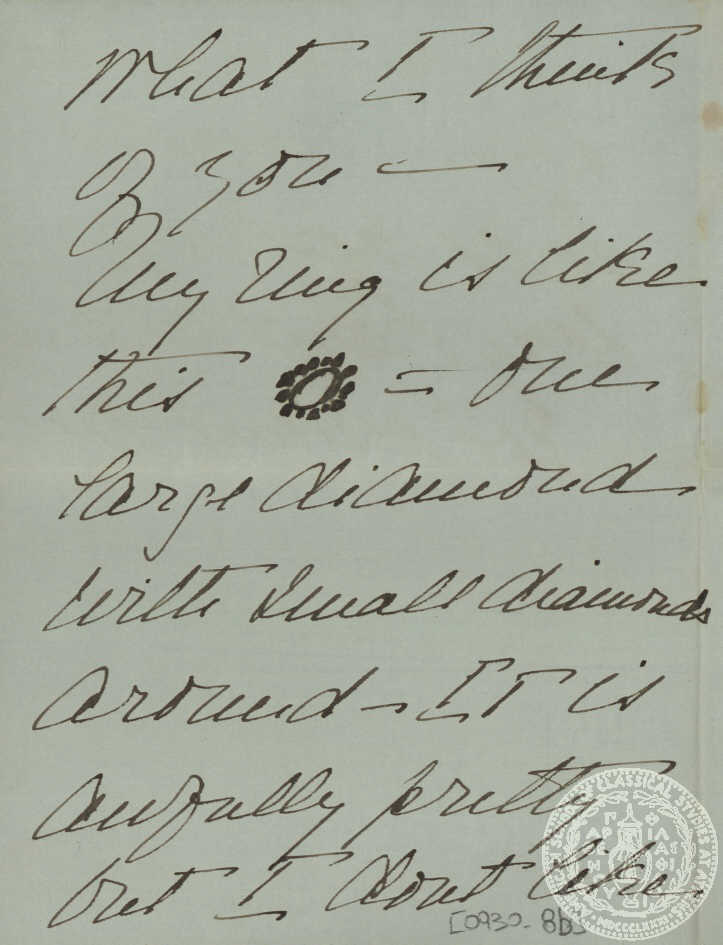 what I think
of you —
My ring is like
this = one
large diamond
with small diamonds
around – It is
awfully pretty
but I dont like
[0930-8b]